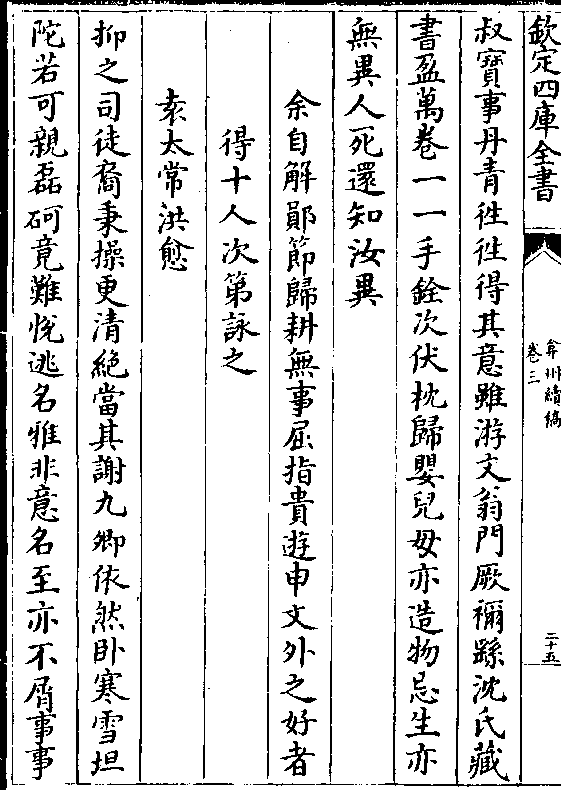 欽定四庫全書
弇州續稿
卷三
二十五
叔寶事丹青徃徃得其意雖游文翁門厥禰繇沈氏藏
書盈萬卷一一手銓次伏枕歸嬰兒毋亦造物忌生亦
無異人死還知汝異
余自解鄖節歸耕無事屈指貴遊申文外之好者
得十人次第詠之
袁太常洪愈
抑之司徒裔秉操更清絶當其謝九卿依然卧寒雪坦
陀若可親磊砢竟難悅逃名雅非意名至亦不屑事事